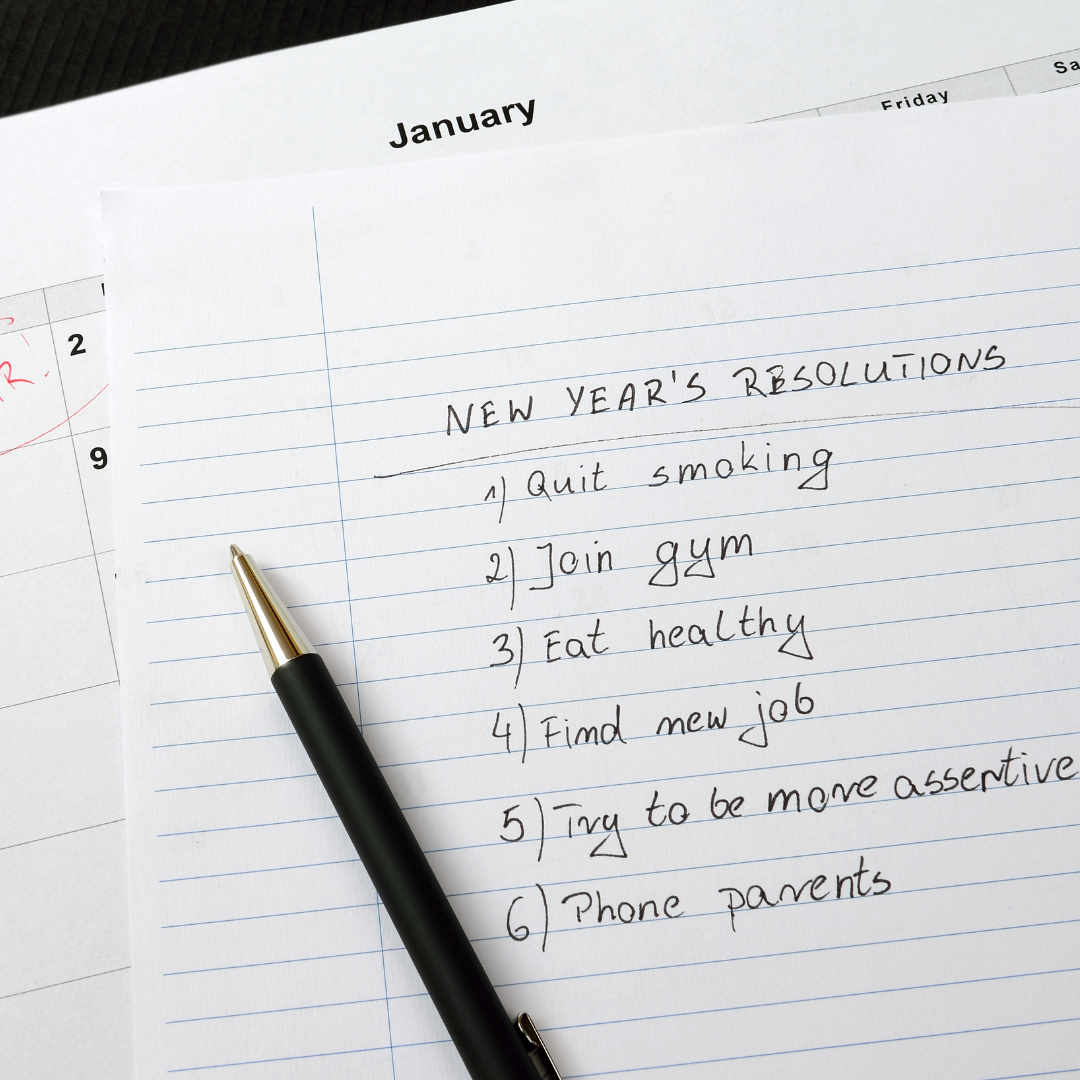 January
Friday
Sa
2
R.
9
NEW YEAR'S RESOLUTIONS
1) Quit smoking
2) Join gym
3) Eat healthy
4) Find new job
5) Try to be more assertive
6) Phone parents